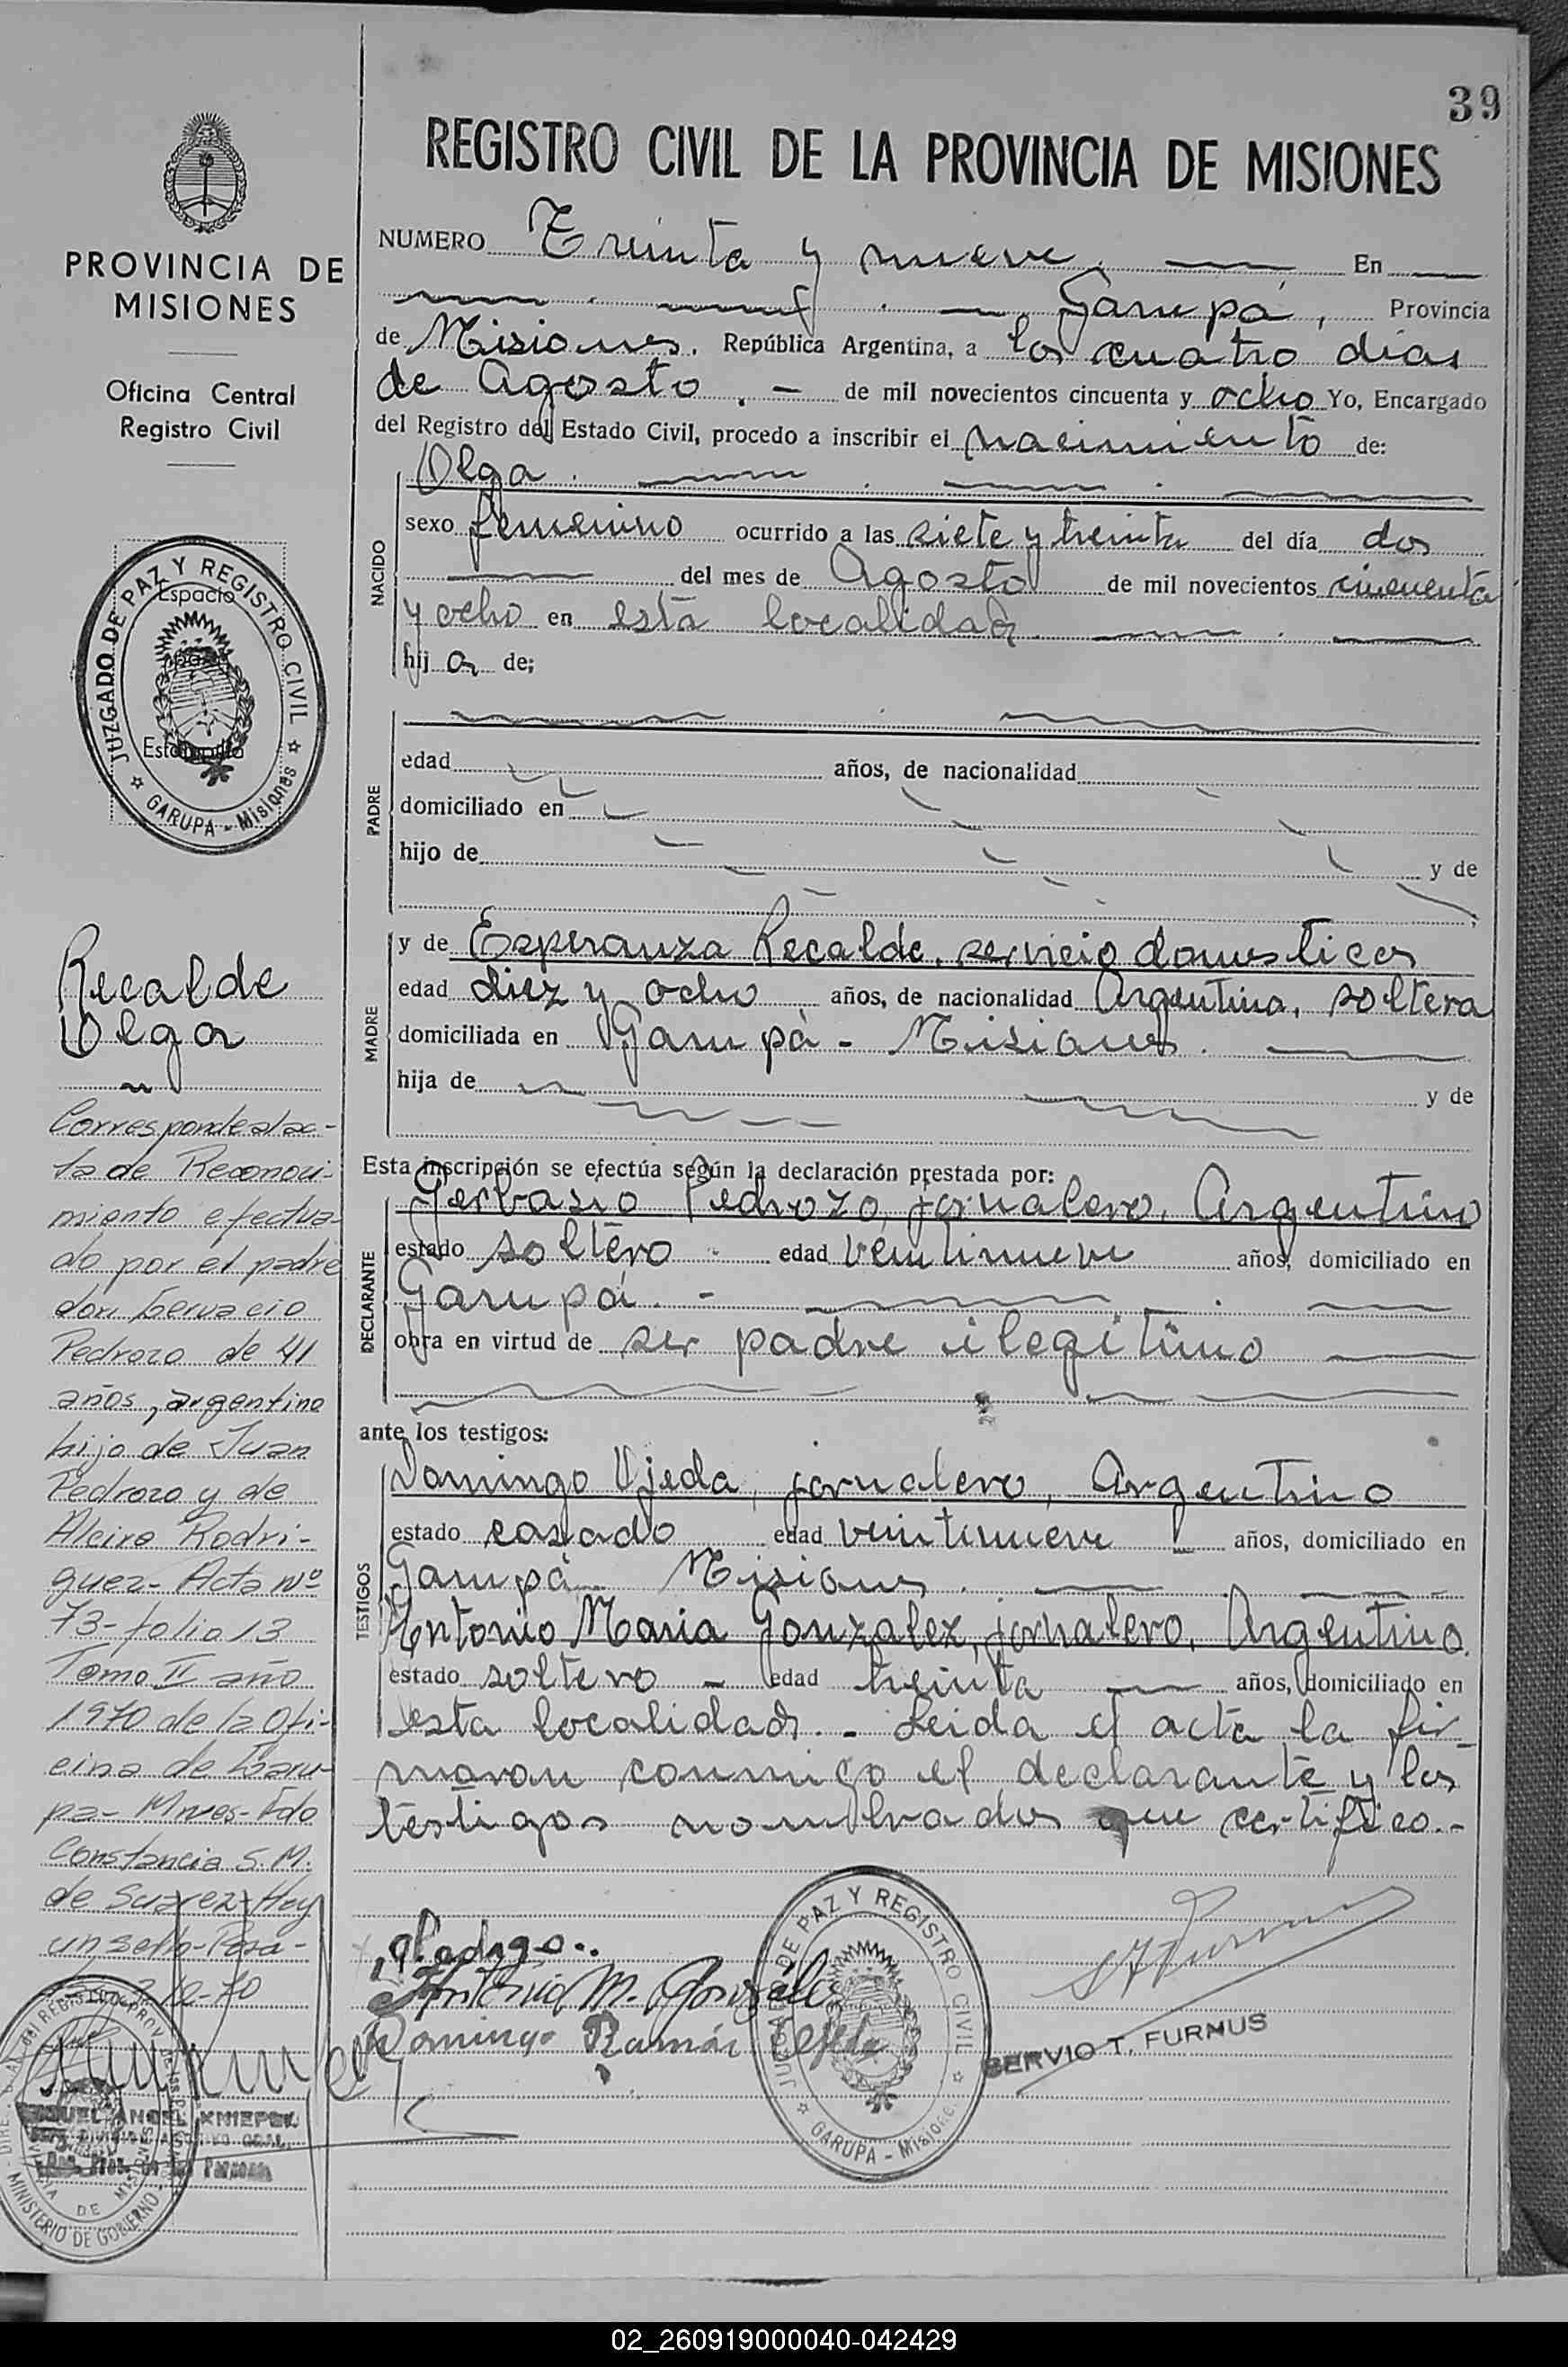 39
REGISTRO CIVIL DE LA PROVINCIA DE MISIONES
PROVINCIA DE
MISIONES
Oficina Central
Registro Civil
JUZGADO DE PAZ Y REGISTRO CIVIL
GARUPA - Misiones
Espacio
Estampilla
Recalde
Olga
Corresponde al ac-
ta de Reconoci-
miento efectua-
do por el padre
don Gervacio
Pedrozo de 41
años, argentino
hijo de Juan
Pedrozo y de
Alcira Rodri-
guez- Acta Nº
73- folio 13
Tomo II año
1970 de la Ofi-
cina de Garu-
pa- Mnes- Fdo
Constancia S. M.
de Suarez- Hay
un sello- Posa-
12-70
MINISTERIO DE GOBIERNO
NUMERO Treinta y nueve. En
Garupá, Provincia
de Misiones. República Argentina, a los cuatro dias
de Agosto. - de mil novecientos cincuenta y ocho Yo, Encargado
del Registro del Estado Civil, procedo a inscribir el nacimiento de:
NACIDO
Olga.
sexo femenino ocurrido a las siete y treinta del día dos
del mes de Agosto de mil novecientos cincuenta
y ocho en esta localidad.
hij a de;
PADRE
edad años, de nacionalidad
domiciliado en
hijo de y de
MADRE
y de Esperanza Recalde, servicio domesticos
edad diez y ocho años, de nacionalidad Argentina, soltera
domiciliada en Garupá - Misiones.
hija de y de
Esta inscripción se efectúa según la declaración prestada por:
DECLARANTE
Gerbasio Pedrozo, jornalero, Argentino
estado soltero edad veintinueve años, domiciliado en
Garupá. -
obra en virtud de ser padre ilegitimo
ante los testigos:
TESTIGOS
Domingo Ojeda, jornalero, Argentino
estado casado edad veintinueve años, domiciliado en
Garupá Misiones.
Antonio Maria Gonzalez, jornalero, Argentino.
estado soltero - edad treinta años, domiciliado en
esta localidad. - Leida el acta la fir-
maron conmigo el declarante y los
testigos nombrados que certifico.-
Antonio M. González
Domingo Ramón Ojeda
JUZGADO DE PAZ Y REGISTRO CIVIL
GARUPA - Misiones
SERVIO T. FURMUS
02_260919000040-042429